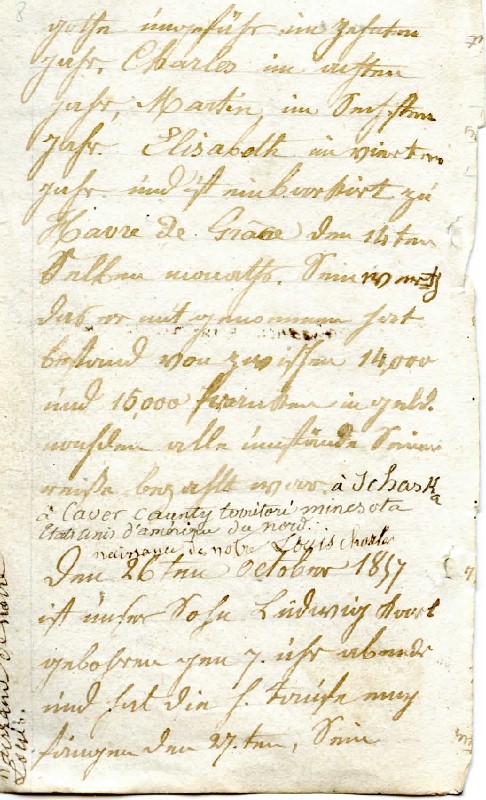 8
gothe ungefähr im zehnten
jahr, Charles im achten
jahr, Martin, im Sechsten
jahr. Elisabeth im vierten
jahr und ist einbarkirt zu
Havre de Grâce den 14ten
Selben monaths. Sein werth
das er mit genommen hat
bestand von zwischen 14,000
und 15,000 franken in geld.
nachdem alle umstände Seiner
reiße bezahlt war. à Schaska
à Caver County toritoré minesota
Etats unis d'amérique du nord.
naissance de notre Louis Charles
Den 26ten October 1857
ist unser Sohn Ludwig Karl
gebohren gen 7. uhr abends
und hat die h. taufe emp
fangen den 27.ten, Sein
naissance de notre
Louis.